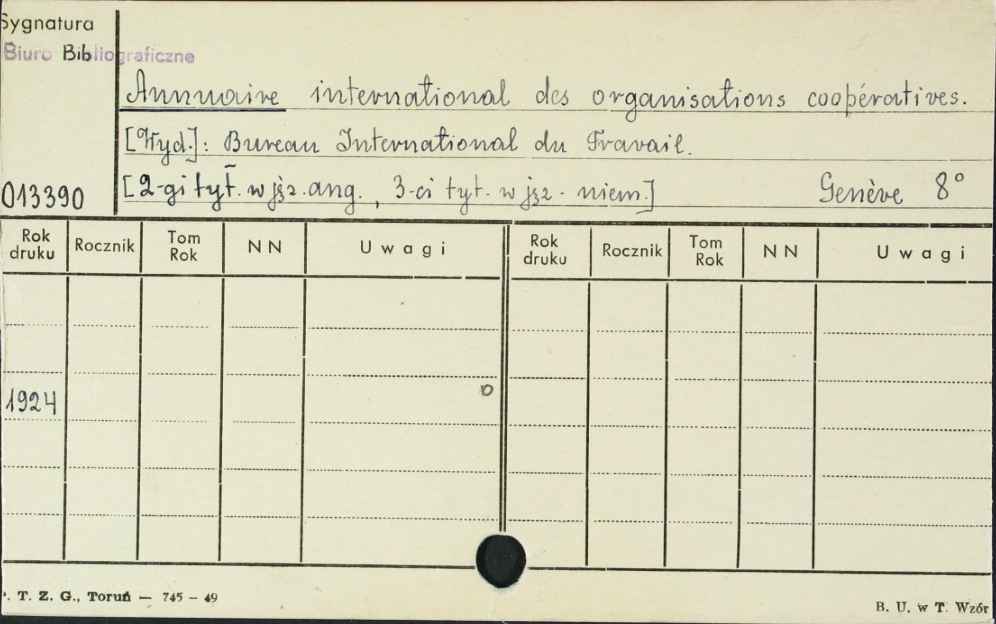 Sygnatura
Biuro Bibliograficzne
Annuaire international des organisations coopératives.
[Wyd.]: Bureau International du Travail.
013390 [2-gi tyt. w jęz. ang., 3-ci tyt. w jęz. niem.] Genève 8°
Rok druku Rocznik Tom Rok NN Uwagi Rok druku Rocznik Tom Rok NN Uwagi
1924 o
T. Z. G., Toruń — 745 — 49
B. U. w T. Wzór